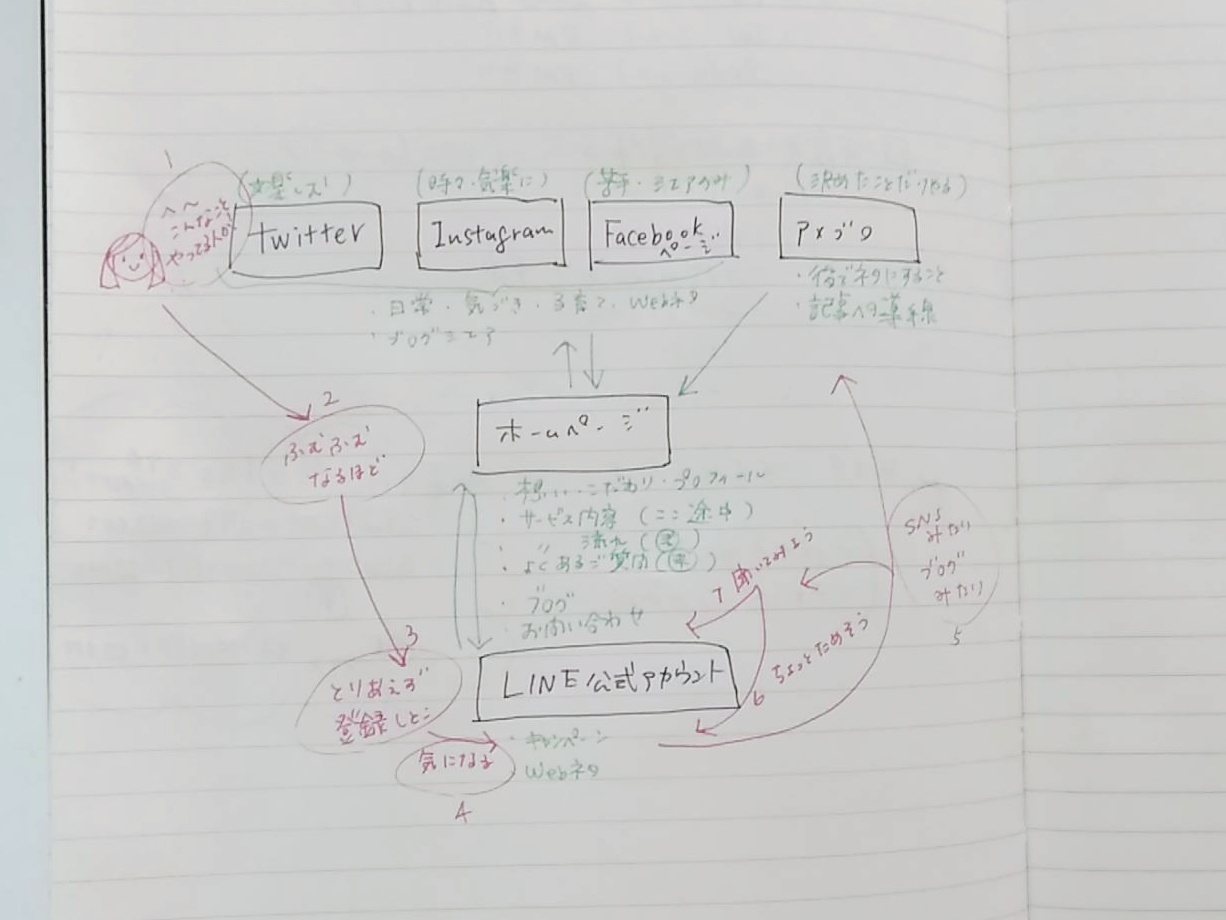 1
へ〜
こんなこと
やってるんだ
(時々・気楽に)
(苦手・シェアのみ)
(決めたことだけやる)
twitter
Instagram
Facebook
ページ
アメブロ
・日常・気づき・子育て、Webネタ
・ブログシェア
・後でネタにすること
・記事への導線
2
ふむふむ
なるほど
ホームページ
・想い・こだわり・プロフィール
・サービス内容(ここ途中)
・〃 流れ(未)
・よくあるご質問(未)
・ブログ
・お問い合わせ
7 聞いてみよう
SNS
みたり
ブログ
みたり
5
3
とりあえず
登録しとこ
LINE公式アカウント
6 ちょっとためそう
・キャンペーン
Webネタ
気になる
4